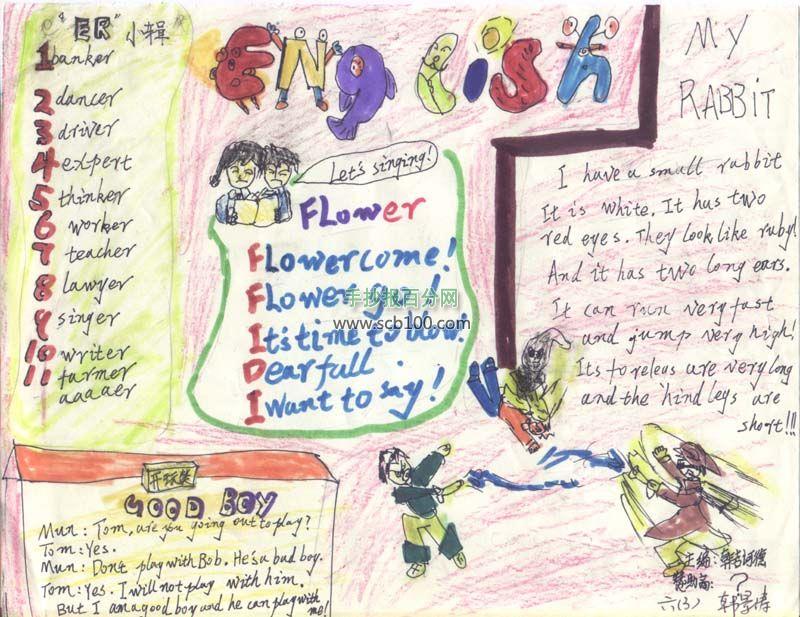 "ER" 小辑
1 banker
2 dancer
3 driver
4 expert
5 thinker
6 worker
7 teacher
8 lawyer
9 singer
10 writer
11 farmer
aaaaer
ENGLISH
Let's singing!
FLower
FLower come!
FLower go!
It's time to blow!
Dear full
I want to say!
手抄报百分网
www.scb100.com
MY
RABBIT
I have a small rabbit
It is white. It has two
red eyes. They look like ruby!
And it has two long ears.
It can run very fast
and jump very high!
Its forelegs are very long
and the hind legs are
short!!!
开玩笑
GOOD BOY
Mun: Tom, are you going out to play?
Tom: Yes.
Mun: Don't play with Bob. He's a bad boy.
Tom: Yes. I will not play with him.
But I am a good boy and he can play with
me!
主编:
?
六(3) 韩景涛